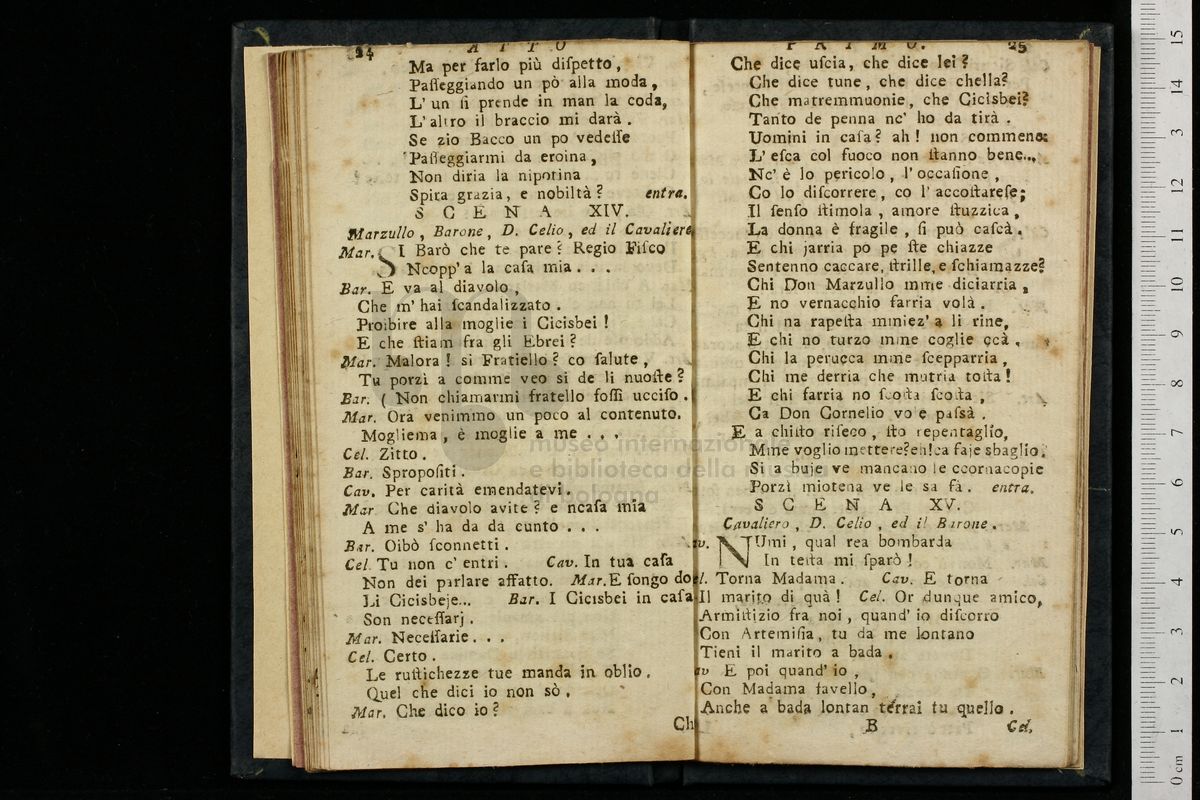 24 A T T O
Ma per farlo più diſpetto,
Paſſeggiando un pò alla moda,
L' un ſi prende in man la coda,
L' altro il braccio mi darà.
Se zio Bacco un po vedeſſe
Paſſeggiarmi da eroina,
Non diria la nipotina
Spira grazia, e nobiltà? entra.
S C E N A XIV.
Marzullo, Barone, D. Celio, ed il Cavaliere
Mar. SI Barò che te pare? Regio Fiſco
Ncopp' a la caſa mia...
Bar. E va al diavolo,
Che m' hai ſcandalizzato.
Proibire alla moglie i Cicisbei!
E che ſtiam fra gli Ebrei?
Mar. Malora! si Fratiello? co ſalute,
Tu porzì a comme veo si de li nuoſte?
Bar. (Non chiamarmi fratello foſſi ucciſo.
Mar. Ora venimmo un poco al contenuto.
Mogliema, è moglie a me...
Cel. Zitto.
Bar. Spropoſiti.
Cav. Per carità emendatevi.
Mar. Che diavolo avite? e ncaſa mia
A me s' ha da da cunto...
Bar. Oibò ſconnetti.
Cel. Tu non c' entri. Cav. In tua caſa
Non dei parlare affatto. Mar. E ſongo do
Li Cicisbeje... Bar. I Cicisbei in caſa
Son neceſſarj.
Mar. Neceſſarie...
Cel. Certo.
Le ruſtichezze tue manda in oblio,
Quel che dici io non sò.
Mar. Che dico io?
Ch
P R I M O. 25
Che dice uſcia, che dice lei?
Che dice tune, che dice chella?
Che matremmuonie, che Cicisbei?
Tanto de penna nc' ho da tirà.
Uomini in caſa? ah! non commene:
L' eſca col fuoco non ſtanno bene...
Nc' è lo pericolo, l' occaſione,
Co lo diſcorrere, co l' accoſtareſe;
Il ſenſo ſtimola, amore ſtuzzica,
La donna è fragile, ſi può caſcà.
E chi jarria po pe ſte chiazze
Sentenno caccare, ſtrille, e ſchiamazze?
Chi Don Marzullo mme diciarria,
E no vernacchio farria volà.
Chi na rapeſta mmiez' a li rine,
E chi no turzo mme coglie ccà,
Chi la perucca mme ſcepparria,
Chi me derria che mutria toſta!
E chi farria no ſcoſta ſcoſta,
Ca Don Cornelio vo e paſsà.
E a chiſto riſeco, ſto repentaglio,
Mme voglio mettere? eh! ca faje sbaglio.
Si a buje ve mancano le ccornacopie
Porzì miotena ve le sa fà. entra.
S C E N A XV.
Cavaliero, D. Celio, ed il Barone.
v. NUmi, qual rea bombarda
In teſta mi ſparò!
l. Torna Madama. Cav. E torna
Il marito di quà! Cel. Or dunque amico,
Armiſtizio fra noi, quand' io diſcorro
Con Artemiſia, tu da me lontano
Tieni il marito a bada.
v E poi quand' io,
Con Madama favello,
Anche a bada lontan terrai tu quello.
B Cel.
museo internazionale
e biblioteca della musica
di bologna
15
14
13
12
11
10
9
8
7
6
5
4
3
2
1
0 cm